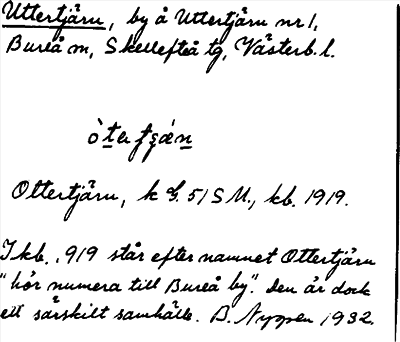 Uttertjärn, by å Uttertjärn nr 1,
Bureå sn, Skellefteå tg, Västerb. l.
Ottertjärn, k G. 51 S M., kb. 1919.
I kb. 1919 står efter namnet Ottertjärn
"hör numera till Bureå by". Den är dock
ett särskilt samhälle. B. Nyppen 1932.